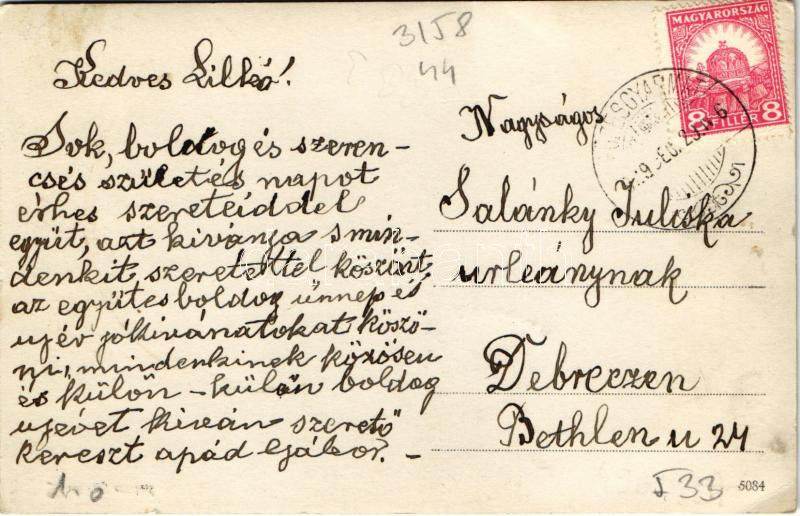 3158
44
Kedves Lilkó!
Sok, boldog és szeren-
csés születés napot
érhes szereteiddel
együt, azt kivánja s min-
denkit szeretettel köszönt,
az együtes boldog ünnep és
ujév jókivánatokat köszö-
ni, mindenkinek közösen
és külön-külön boldog
ujévet kiván szerető
kereszt apád Gábor.-
MAGYARORSZÁG
8 FILLÉR 8
Nagyságos
Salánky Juliska
urleánynak
Debreczen
Bethlen u 24
5084